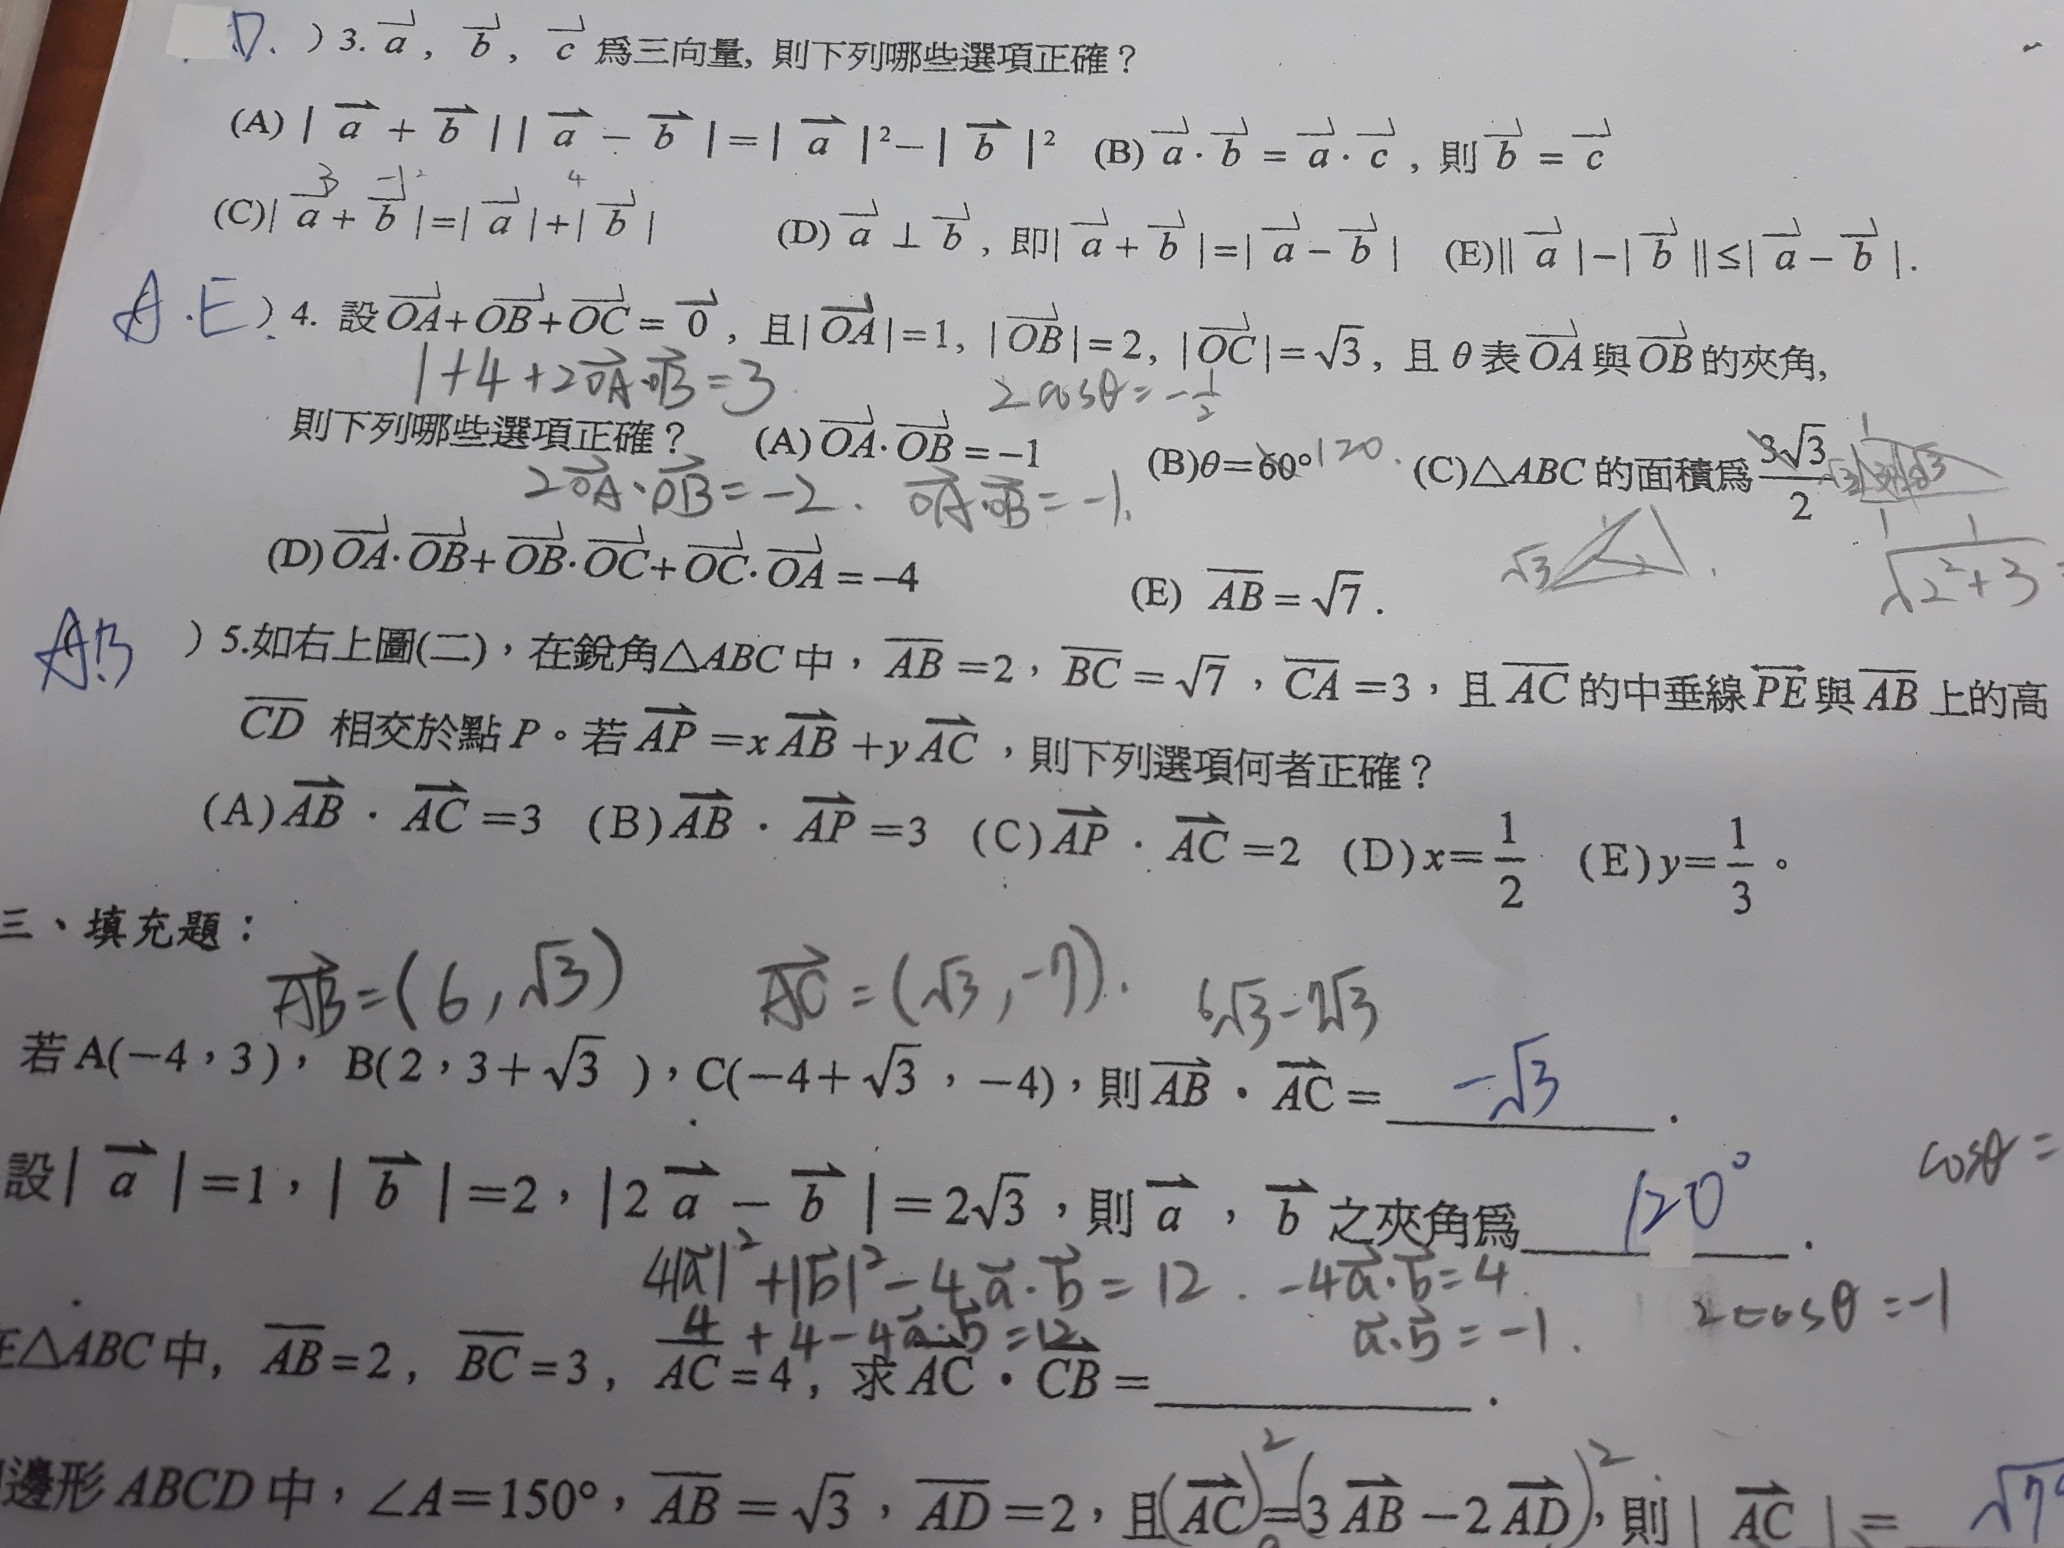 D. ) 3. a , b , c 為三向量, 則下列哪些選項正確?
(A) | a + b | | a − b | = | a |²−| b |² (B) a · b = a · c , 則 b = c
3 -1 4
(C)| a + b |=| a |+| b | (D) a ⊥ b , 即| a + b |=| a − b | (E)|| a |−| b ||≤| a − b |.
A.E ) 4. 設 OA+OB+OC = 0 , 且| OA |=1, | OB |=2, | OC |=√3 , 且 θ 表 OA 與 OB 的夾角,
1+4+2OA·OB=3 2cosθ=-1/2
則下列哪些選項正確? (A) OA·OB =−1 (B)θ=60° 120. (C)△ABC 的面積為 3√3/2
2OA·OB=-2. OA·OB=-1.
(D) OA·OB+OB·OC+OC·OA =−4 (E) AB = √7 .
√3 √2²+3
AB ) 5.如右上圖(二),在銳角△ABC 中,AB =2,BC = √7 ,CA =3,且 AC 的中垂線 PE 與 AB 上的高
CD 相交於點 P。若 AP =x AB +y AC ,則下列選項何者正確?
(A) AB · AC =3 (B) AB · AP =3 (C) AP · AC =2 (D) x=1/2 (E) y=1/3 。
三、填充題:
AB=(6,√3) AC=(√3,-7). 6√3-7√3
若 A(−4,3), B(2,3+√3 ),C(−4+√3 ,−4),則 AB · AC = -√3 .
cosθ=
設| a |=1,| b |=2,|2 a − b |=2√3 ,則 a , b 之夾角為 120° .
4|a|²+|b|²-4a·b=12. -4a·b=4
4+4-4a·b=12 a·b=-1. 2cosθ=-1
△ABC 中, AB=2, BC=3, AC=4, 求 AC · CB = .
邊形 ABCD 中,∠A=150°,AB = √3 ,AD =2,且(AC)²=(3 AB −2 AD)²,則 | AC | =